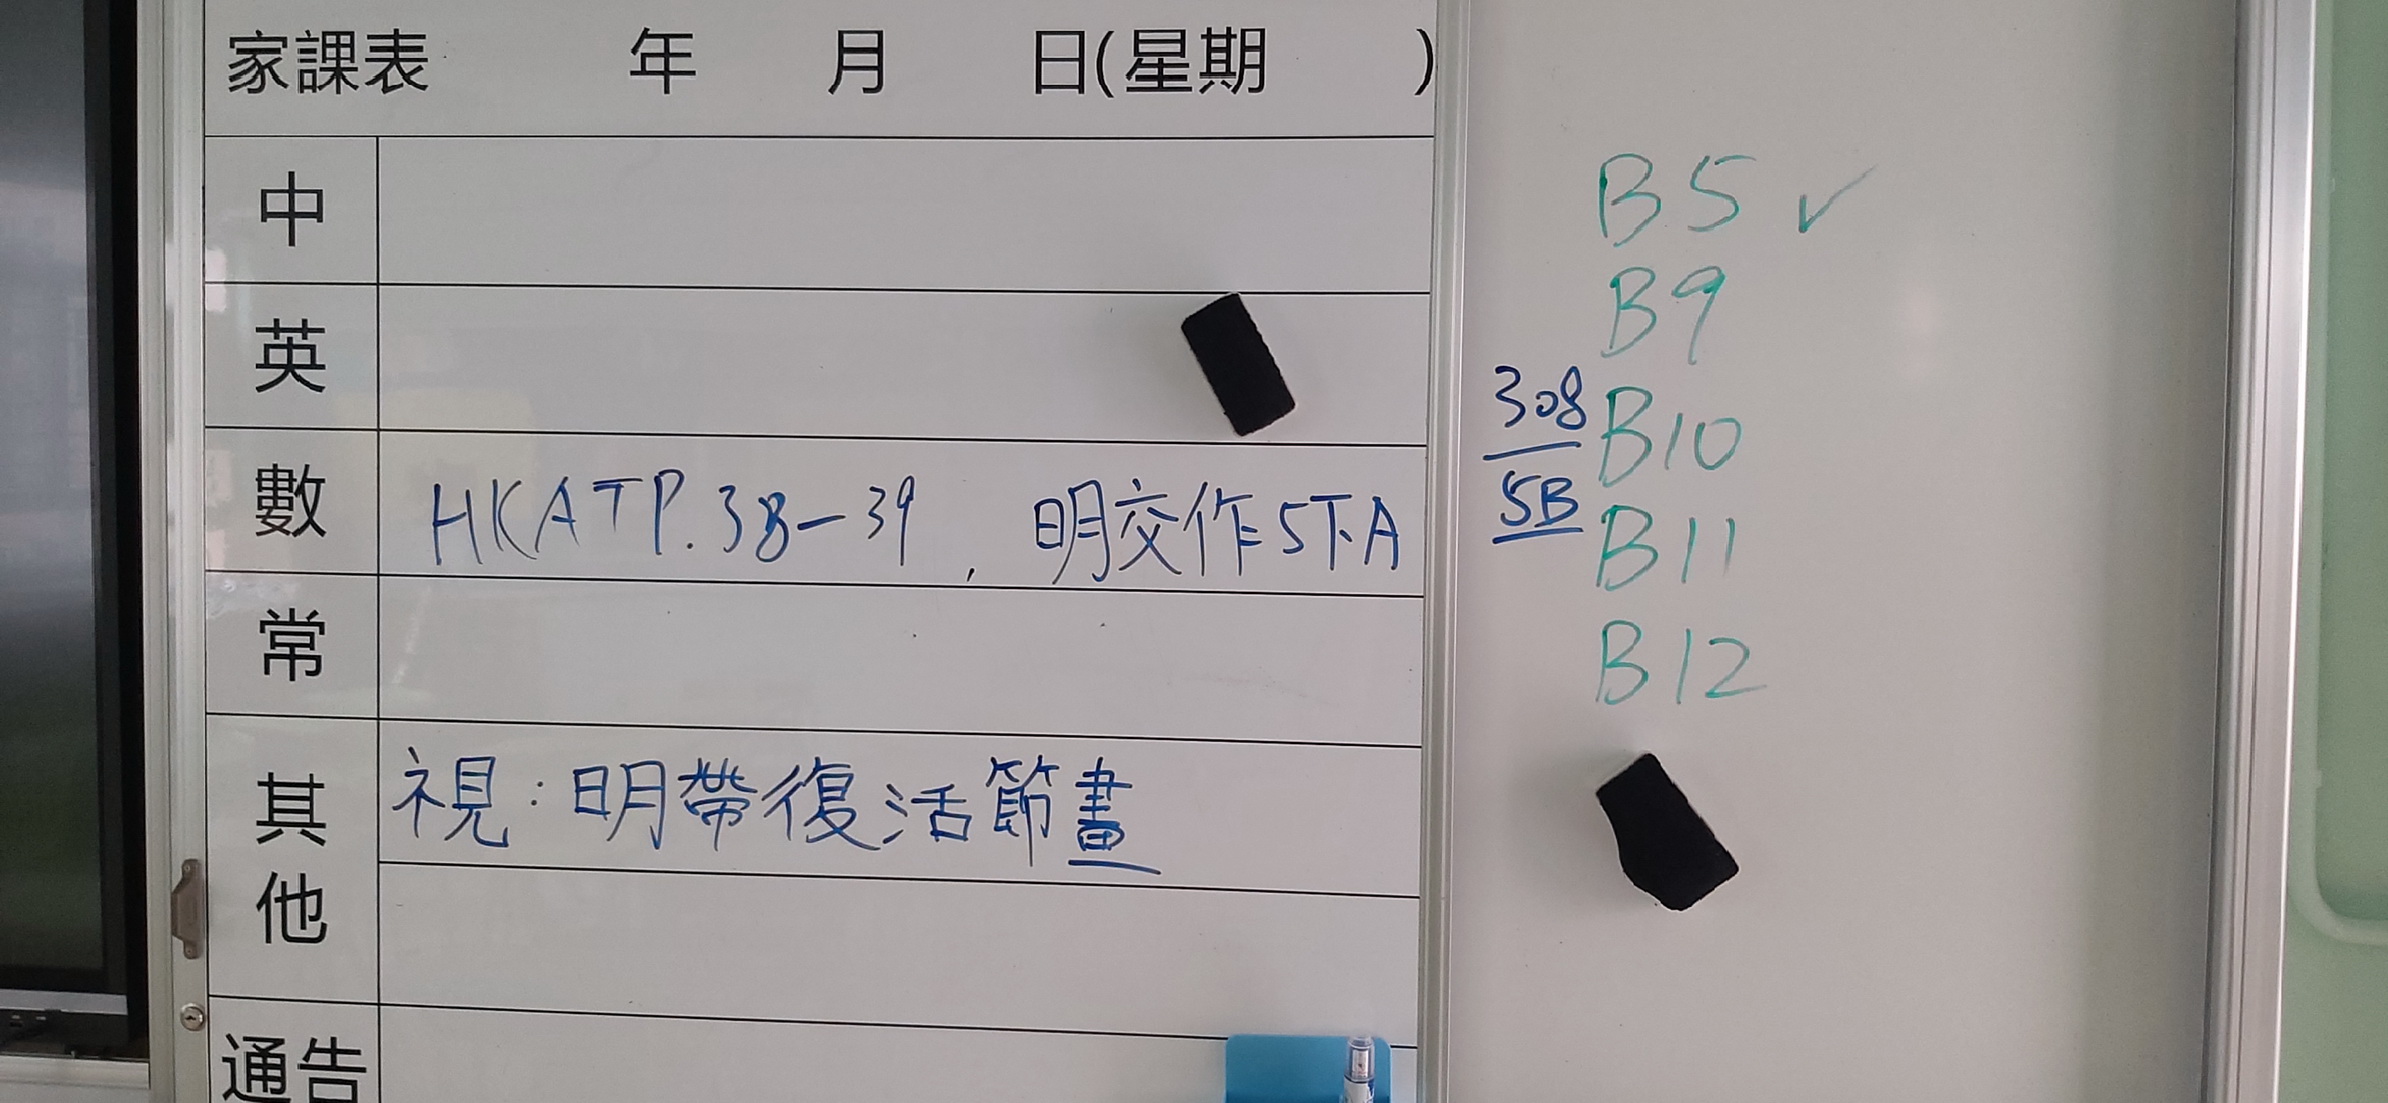 家課表 年 月 日(星期 )
中
英
數 HKATP.38-39, 明交作5下A
常
其他 視:明帶復活節畫
通告
B5 ✓
B9
308 B10
5B B11
B12